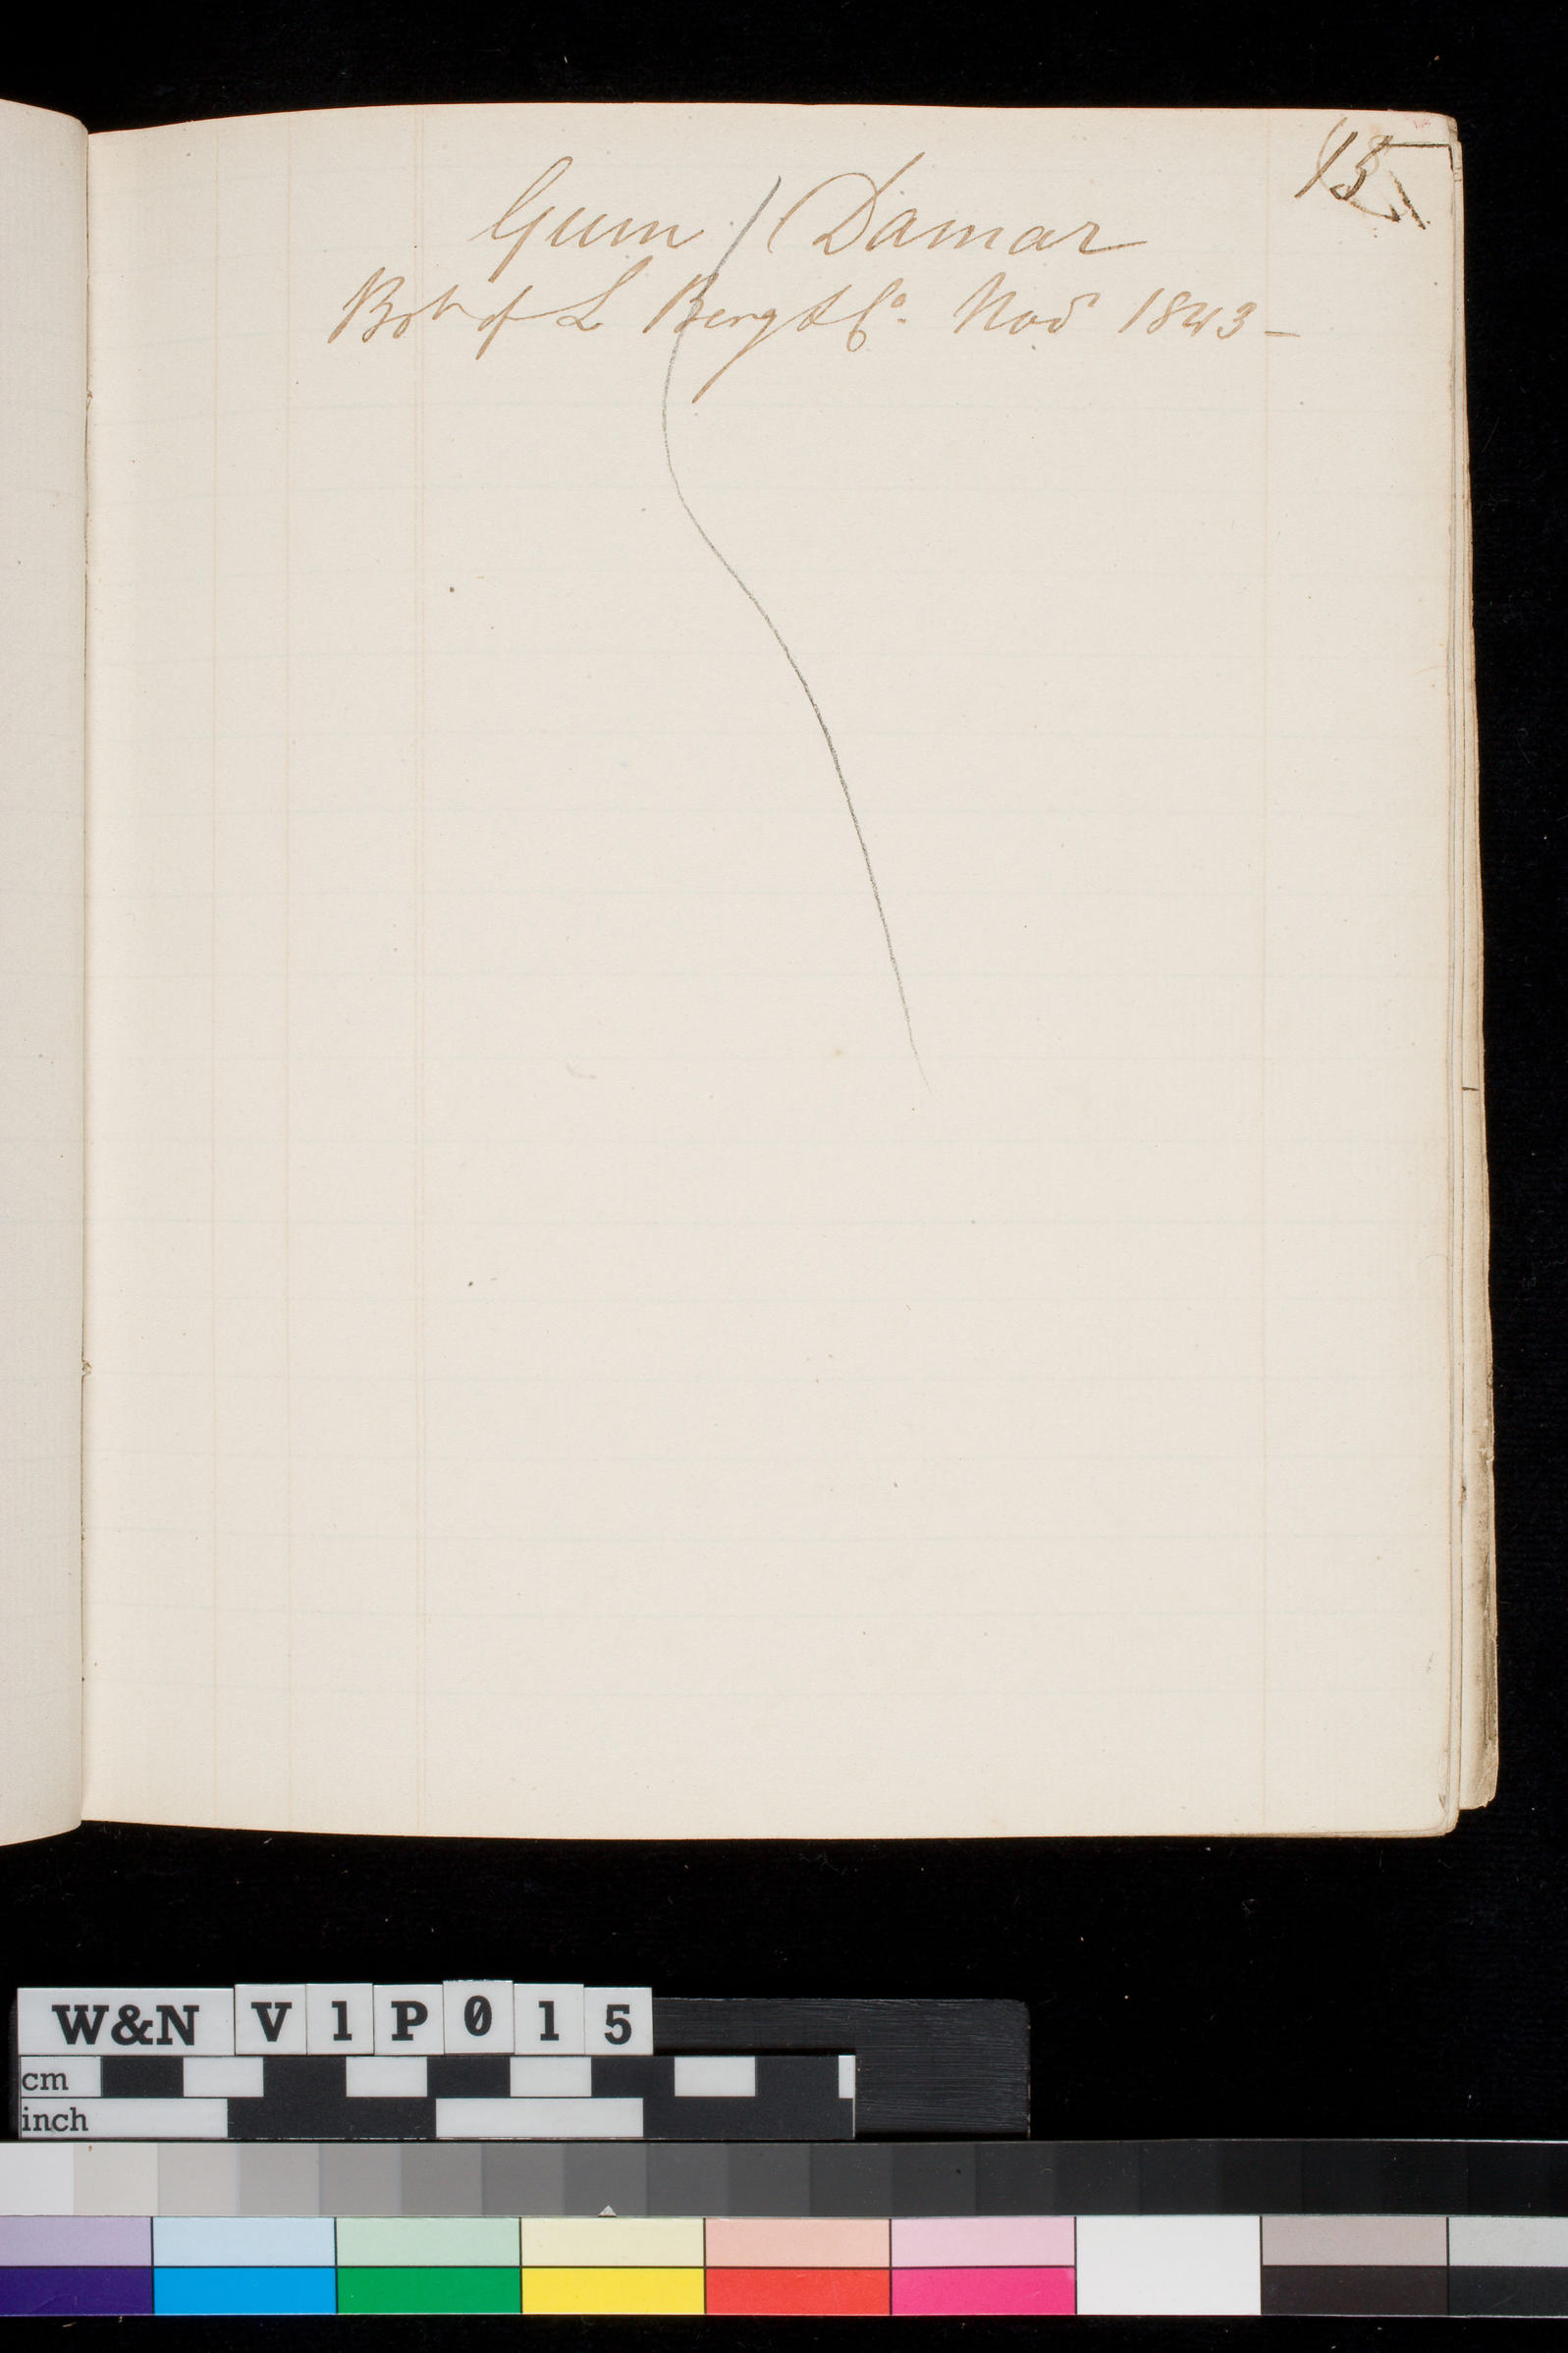 15
Gum Damar
Bot of L Berg & Co. Nov 1843 –
W&N V1P015
cm
inch